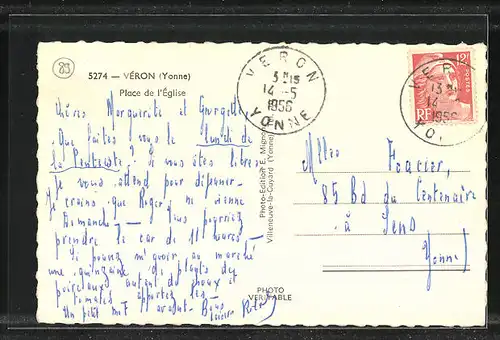 89
5274 — VÉRON (Yonne)
Place de l'Église
Chères Marguerite et Georgette
Que faites vous le lundi de
la Pentecôte? Si vous êtes libres
Je vous attend pour déjeuner.
Je crains que Roger ne vienne
Dimanche — Vous pourriez
prendre le car de 11 heures —
Si pouvez m'avoir au marché
une quinzaine de plants de
poireaux autant de choux et
tomates apportez les —
Un petit mot avant — Bons
VERON
14 -5
1956
YONNE
12F
POSTES
RF
VER
13
14
1956
YO
Mlles
85 Bd du Centenaire
à Sens
Yonne
Photo-Edition
Villeneuve-la-Guyard (Yonne)
PHOTO
VERITABLE